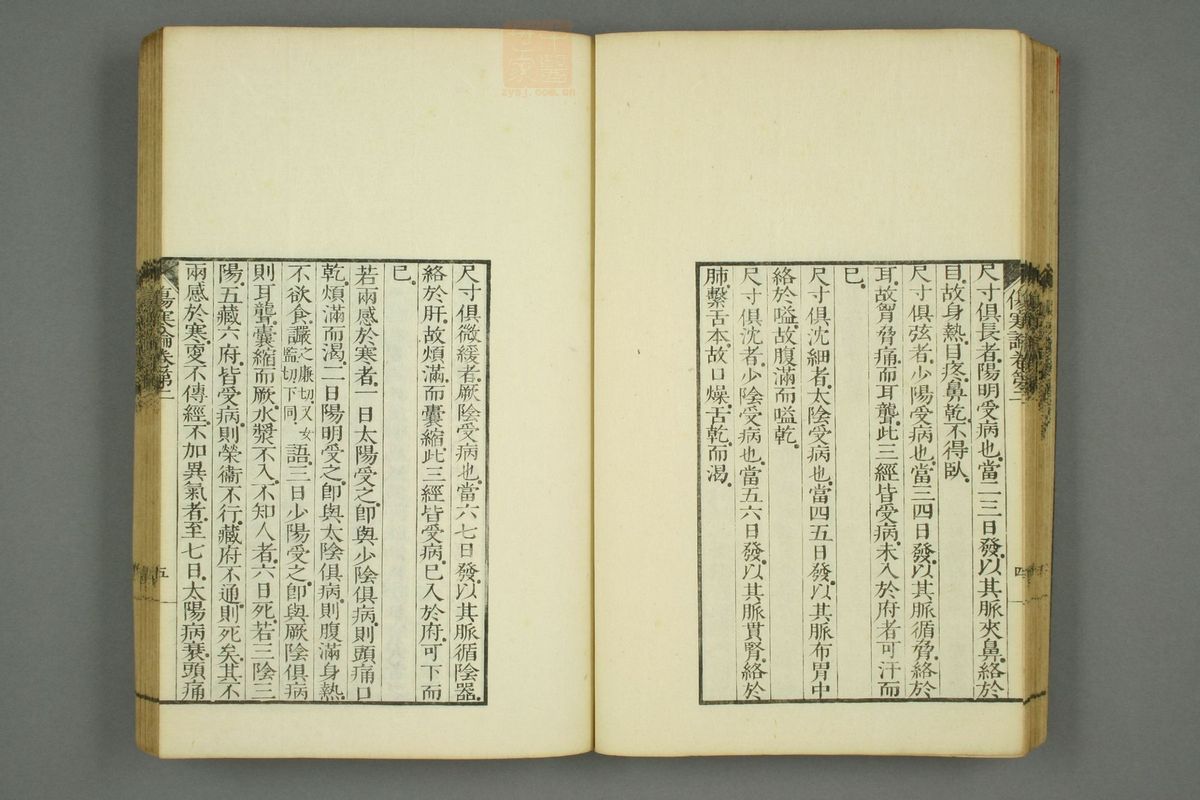 尺寸俱長者。陽明受病也。當二三日發。以其脈夾鼻。絡於
目。故身熱。目疼。鼻乾。不得臥。
尺寸俱弦者。少陽受病也。當三四日發。以其脈循脅。絡於
耳。故胷脅痛。而耳聾。此三經皆受病。未入於府者。可汗而
已。
尺寸俱沈細者。太陰受病也。當四五日發。以其脈布胃中
絡於嗌。故腹滿而嗌乾。
尺寸俱沈者。少陰受病也。當五六日發。以其脈貫腎。絡於
肺。繫舌本。故口燥舌乾。而渴。
尺寸俱微緩者。厥陰受病也。當六七日發。以其脈循陰器。
絡於肝。故煩滿。而囊縮。此三經皆受病。已入於府。可下而
已。
若兩感於寒者。一日太陽受之。卽與少陰俱病。則頭痛口
乾。煩滿而渴。二日陽明受之。卽與太陰俱病。則腹滿身熱。
不欲食。讝之廉切。又女監切。下同。語。三日少陽受之。卽與厥陰俱病
則耳聾囊縮而厥。水漿不入。不知人者。六日死。若三陰三
陽。五藏六府。皆受病。則榮衞不行。藏府不通。則死矣。其不
兩感於寒。更不傳經。不加異氣者。至七日。太陽病衰。頭痛
傷寒論卷第二
五